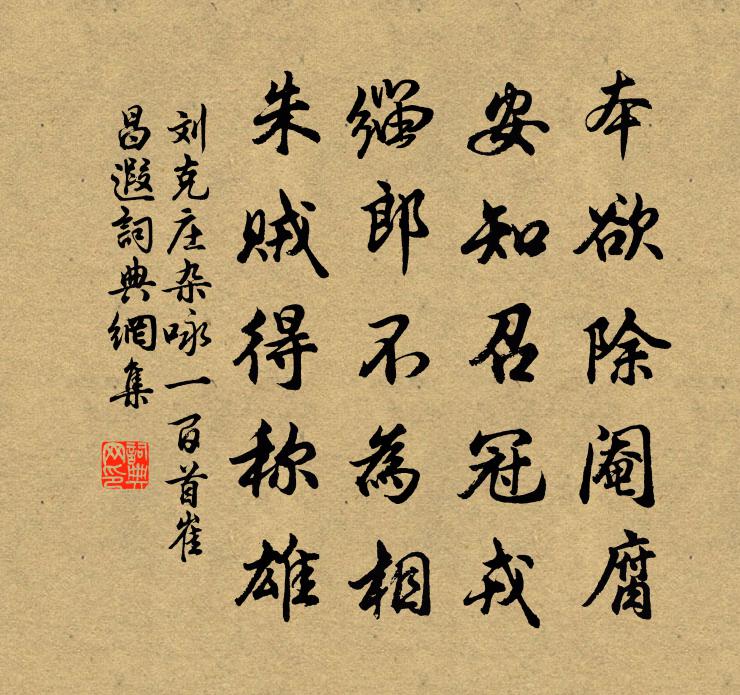 本欲除阉腐
安知召冠戎
缁郎不为相
朱贼得称雄
刘克庄杂咏一百首崔
昌遐詞典網集
詞典
网印